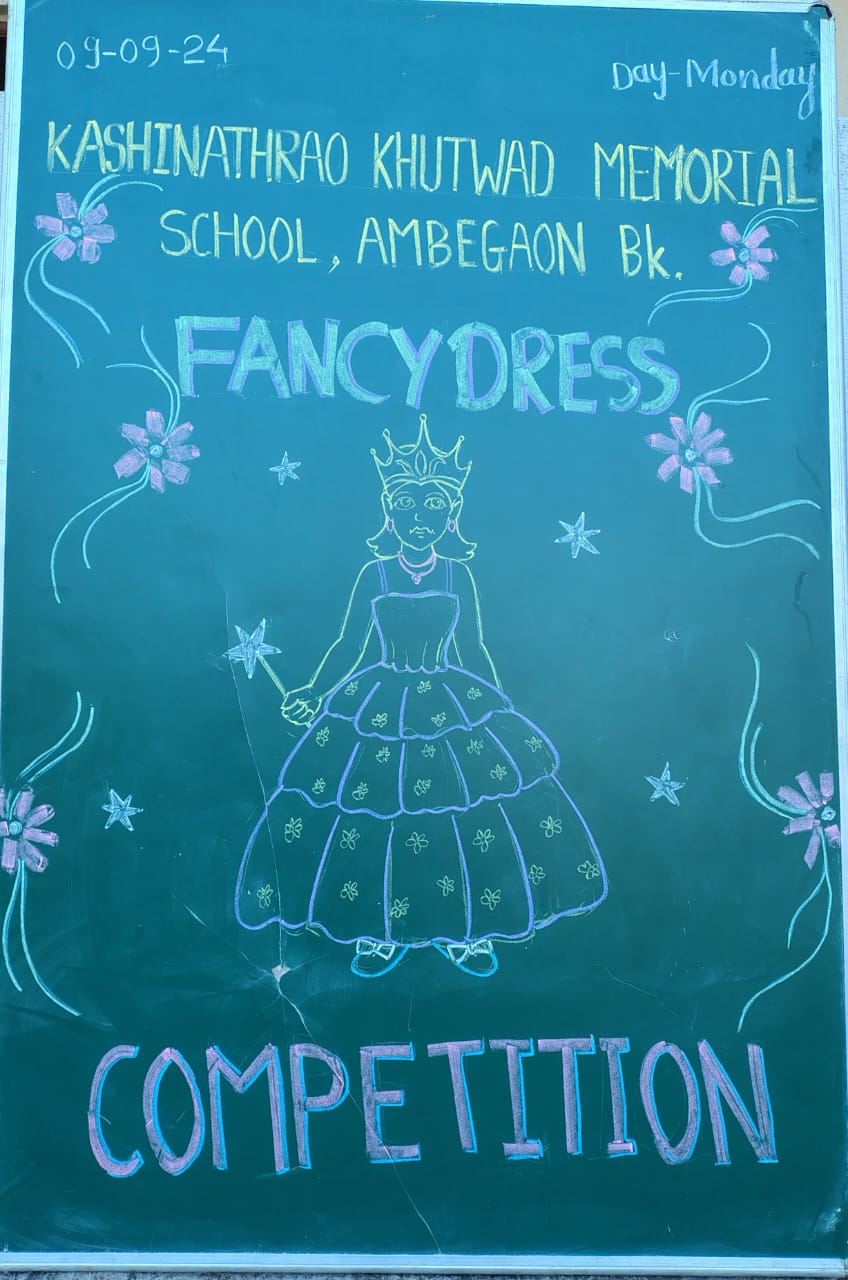 09-09-24
Day-Monday
KASHINATHRAO KHUTWAD MEMORIAL
SCHOOL, AMBEGAON Bk.
FANCY DRESS
COMPETITION